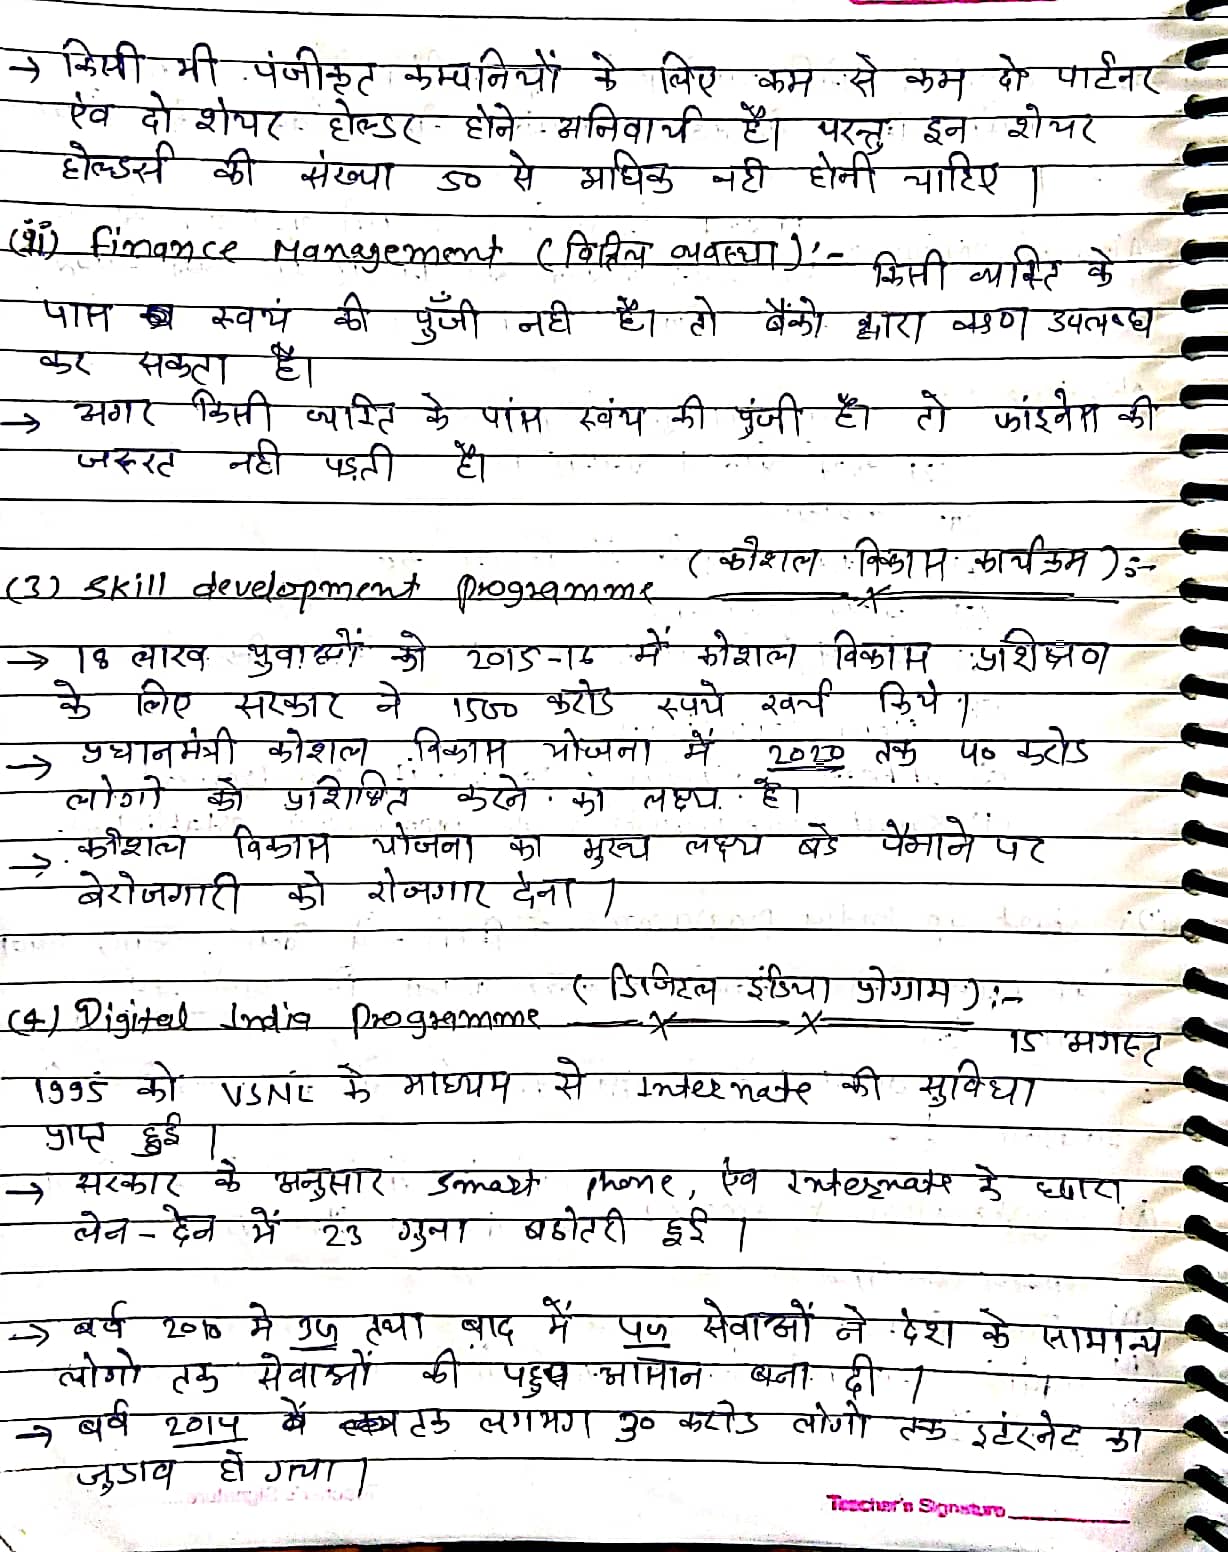 → किसी भी पंजीकृत कम्पनियों के लिए कम से कम दो पार्टनर
ऐव दो शेयर होल्डर होने अनिवार्य है। परन्तु इन शेयर
होल्डर्स की संख्या 50 से अधिक नही होनी चाहिए।
(iii) Finance Management (वित्तिय व्यवस्था):-
किसी व्यक्ति के
पास स्वयं की पुँजी नही है। तो बैंको द्वारा ऋण उपलब्ध
कर सकता है।
→ अगर किसी व्यक्ति के पास स्वंय की पुंजी है। तो फांइनेस की
जरूरत नही पड़ती है।
(कौशल विकास कार्यक्रम):-
(3) Skill development Programme
→ 18 लाख युवाओं को 2015-16 में कौशल विकास प्रशिक्षण
के लिए सरकार ने 1500 करोड रूपये खर्च किये।
→ प्रधानमंत्री कौशल विकास योजना में 2020 तक 40 करोड
लोगो को प्रशिक्षित करने का लक्ष्य है।
→ कौशल विकास योजना का मुख्य लक्ष्य बडे पैमाने पर
बेरोजगारी को रोजगार देना।
(डिजिटल इंडिया प्रोग्राम):-
(4) Digital India Programme
15 अगस्त
1995 को VSNL के माध्यम से Internate की सुविधा
प्राप्त हुई।
→ सरकार के अनुसार Smart phone, ऐव Internate के द्वारा
लेन-देन में 23 गुना बढोतरी हुई।
→ बर्ष 2010 मे 3G तथा बाद में 4G सेवाओं ने देश के सामान्य
लोगो तक सेवाओं की पहुच आसान बना दी।
→ बर्ष 2014 तक लगभग 30 करोड लोगो तक इटंरनेट का
जुडाव हो गया।
Teacher's Signature